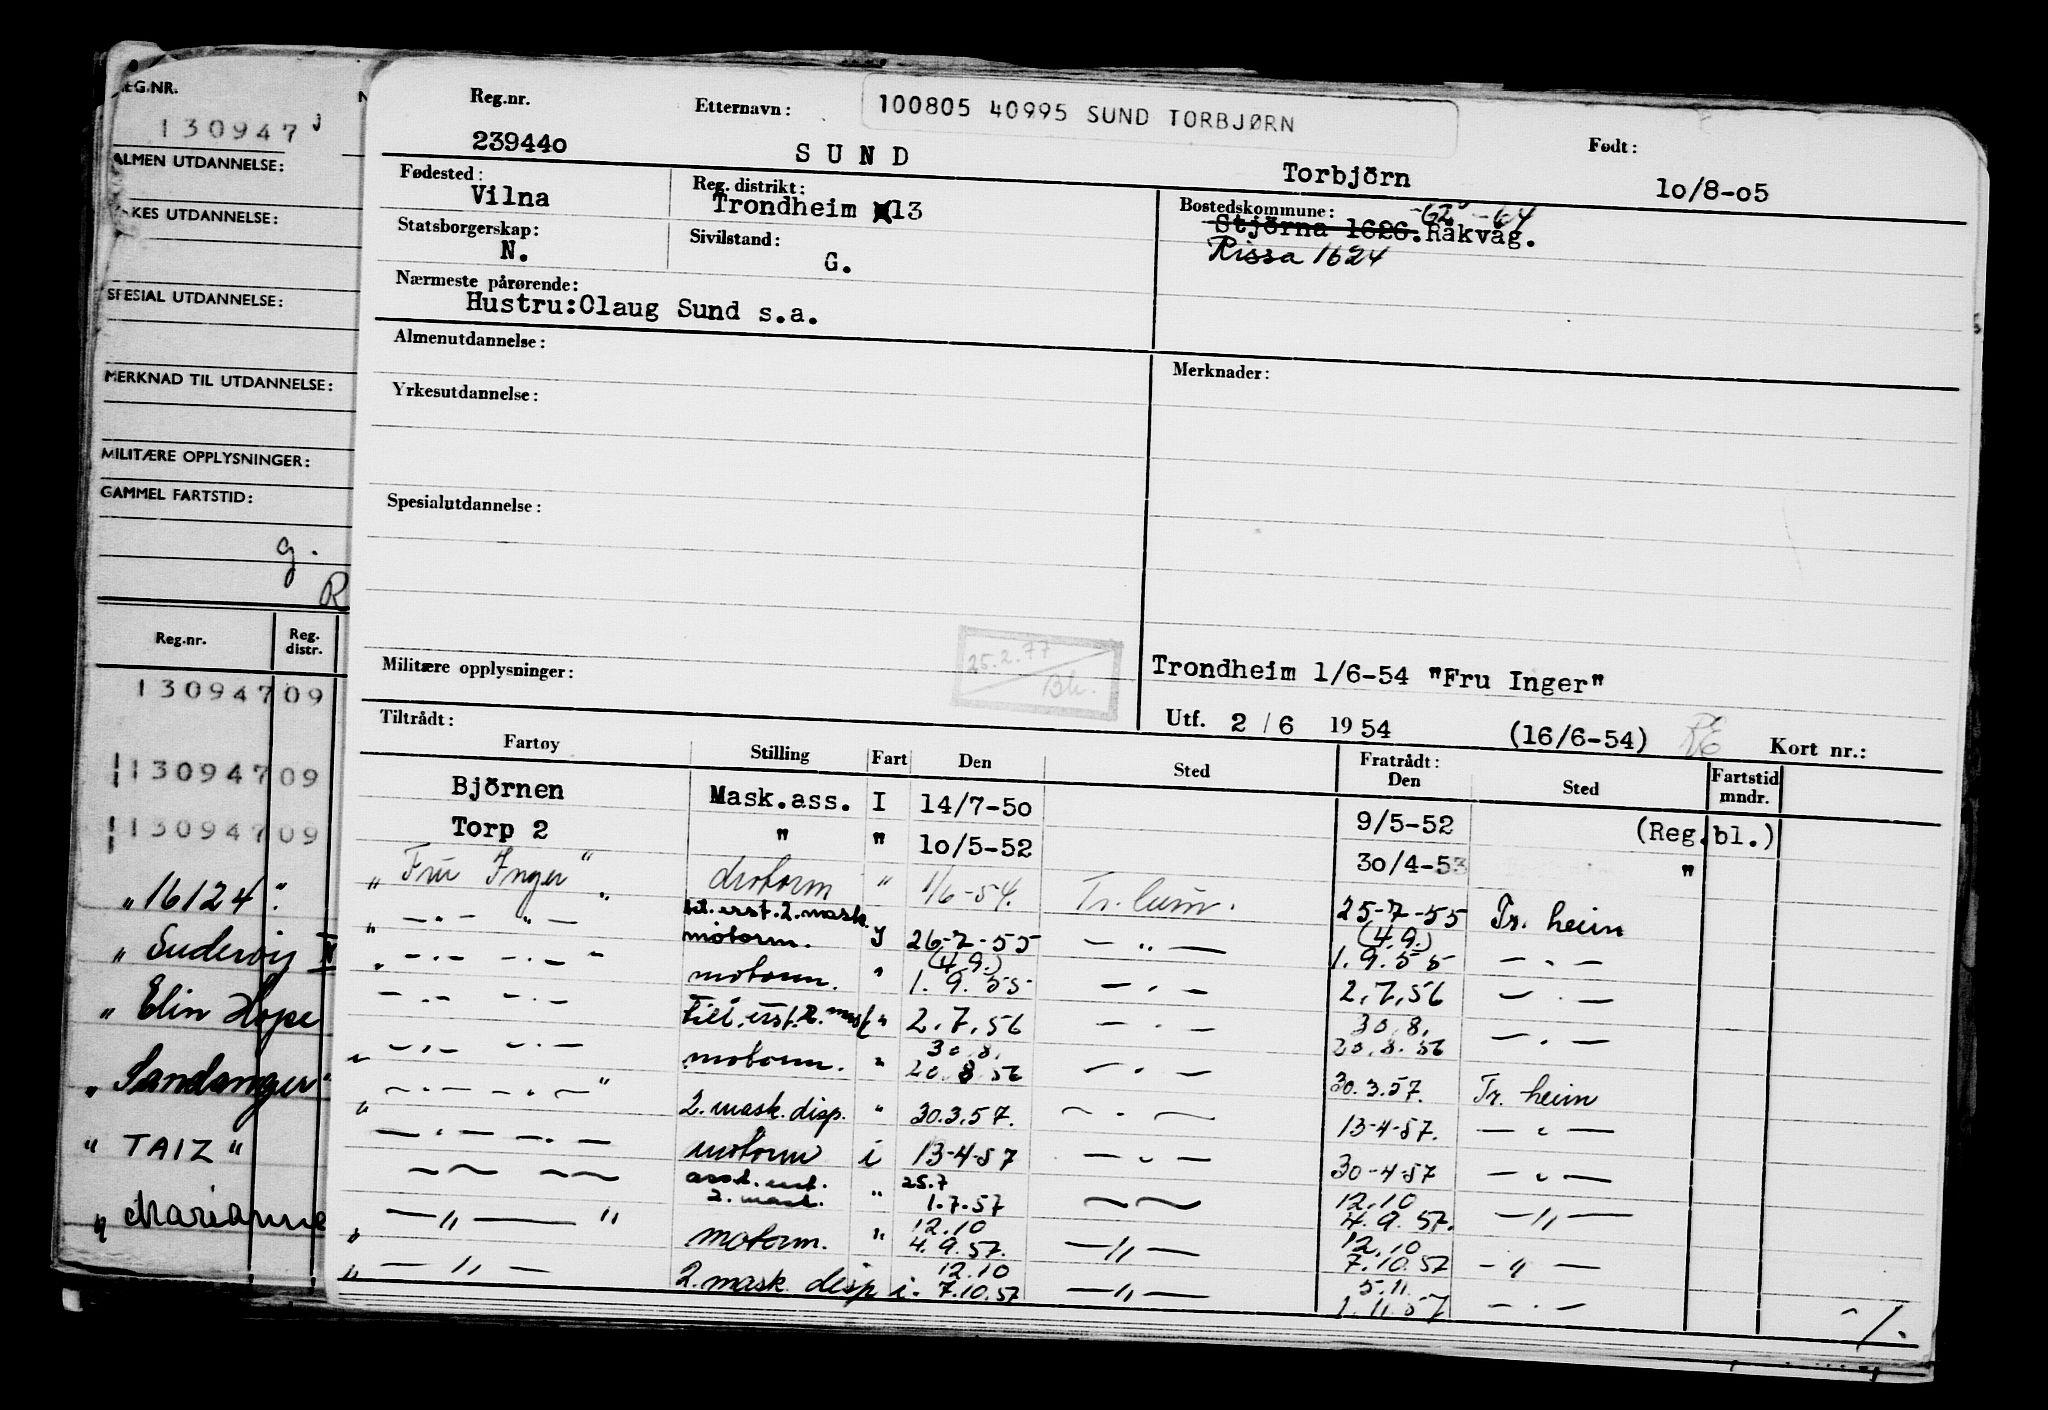 REG.NR.
130947
ALMEN UTDANNELSE:
YRKES UTDANNELSE:
SPESIAL UTDANNELSE:
MERKNAD TIL UTDANNELSE:
MILITÆRE OPPLYSNINGER:
GAMMEL FARTSTID:
g.
R
Reg.nr. Reg. distr.
130947 09
130947 09
130947 09
"16124"
"Suderøy IV
"Elin Hope
"Sandanger"
"TAIZ"
"Marianne
Reg.nr. Etternavn: 100805 40995 SUND TORBJØRN Født:
239440 SUND Torbjörn 10/8-05
Fødested: Vilna Reg. distrikt: Trondheim 13 Bostedskommune: -62 -64
Stjörna 1626. Råkvåg.
Statsborgerskap: N. Sivilstand: G. Rissa 1624
Nærmeste pårørende:
Hustru:Olaug Sund s.a.
Almenutdannelse:
Merknader:
Yrkesutdannelse:
Spesialutdannelse:
Militære opplysninger: 25.2.77 Trondheim 1/6-54 "Fru Inger"
Utf. 2/6 1954 (16/6-54) Kort nr.:
Tiltrådt: Fratrådt:
Fartøy Stilling Fart Den Sted Den Sted Fartstid mndr.
Björnen Mask.ass. I 14/7-50 9/5-52 (Reg.bl.)
Torp 2 " " 10/5-52 30/4-53 "
"Fru Inger" motorm " 1/6-54. Tr.heim. 25-7-55 Tr. heim
" — " — " — " til. erst. 2. mask. I 26-7-55 — " — (4.9.) 1.9.55 — " —
motorm.
" — " — " — " motorm. " (4.9.) 1.9.55 — " — 2.7.56 — " —
— " — — " — till. erst. 2. mask " 2.7.56 — " — 30.8. 20.8.56 — " —
" — " — — " — motorm. " 30.8. 20.8.56 — " — 30.3.57. Tr. heim
" — " — — " — " 2. mask. disp. " 30.3.57. — " — 13-4-57. — " —
— " — — " — motorm i 13-4-57 — " — 30-4-57 — " —
" 25.7 1.7.57 12.10 4.9.57. — " —
2. mask.
" — " — " motorm. " 12.10 4.9.57. — " — 12.10 7.10.57 — " —
" — " — 2. mask. disp i. 12.10 7.10.57 — " — 5.11. 1.11.57 — " —